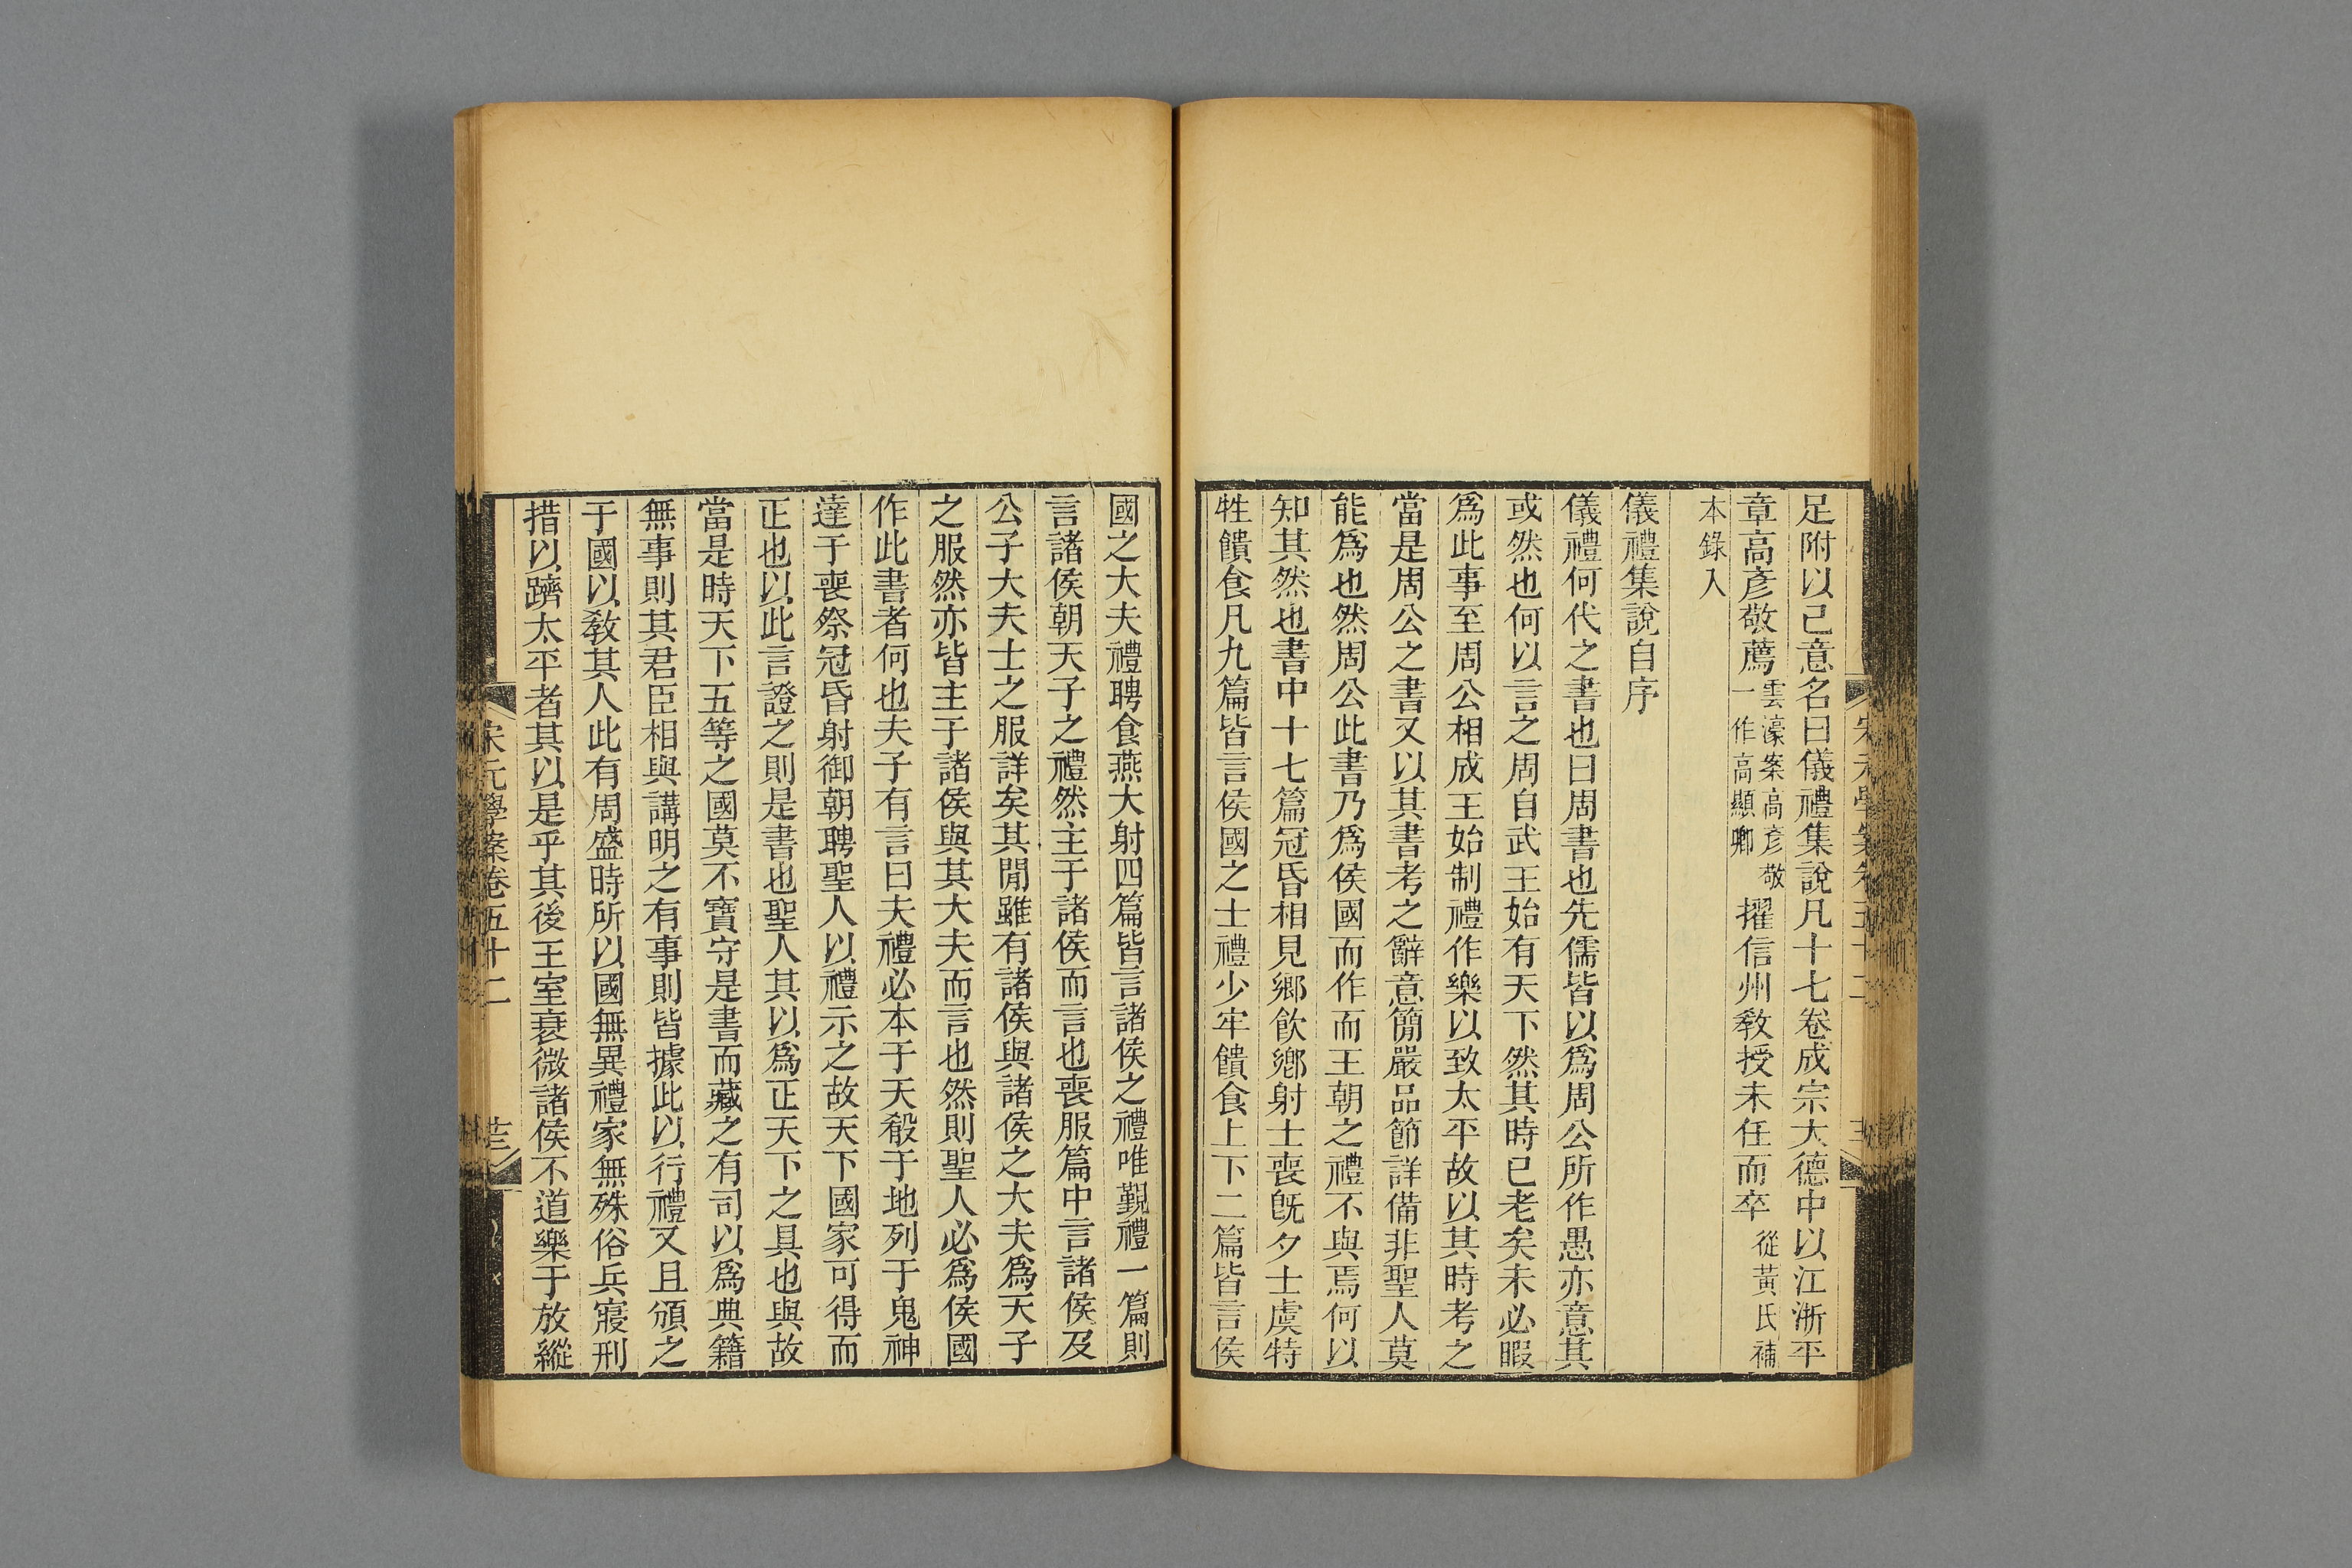 足附以己意名曰儀禮集說凡十七卷成宗大德中以江浙平
章高彥敬薦雲濠案高彥敬一作高顯卿擢信州敎授未任而卒從黃氏補
本錄入
儀禮集說自序
儀禮何代之書也曰周書也先儒皆以爲周公所作愚亦意其
或然也何以言之周自武王始有天下然其時已老矣未必暇
爲此事至周公相成王始制禮作樂以致太平故以其時考之
當是周公之書又以其書考之辭意簡嚴品節詳備非聖人莫
能爲也然周公此書乃爲侯國而作而王朝之禮不與焉何以
知其然也書中十七篇冠昏相見鄉飮鄉射士喪旣夕士虞特
牲饋食凡九篇皆言侯國之士禮少牢饋食上下二篇皆言侯
國之大夫禮聘食燕大射四篇皆言諸侯之禮唯覲禮一篇則
言諸侯朝天子之禮然主于諸侯而言也喪服篇中言諸侯及
公子大夫士之服詳矣其閒雖有諸侯與諸侯之大夫爲天子
之服然亦皆主于諸侯與其大夫而言也然則聖人必爲侯國
作此書者何也夫子有言曰夫禮必本于天殽于地列于鬼神
達于喪祭冠昏射御朝聘聖人以禮示之故天下國家可得而
正也以此言證之則是書也聖人其以爲正天下之具也與故
當是時天下五等之國莫不寶守是書而藏之有司以爲典籍
無事則其君臣相與講明之有事則皆據此以行禮又且頒之
于國以敎其人此有周盛時所以國無異禮家無殊俗兵寢刑
措以躋太平者其以是乎其後王室衰微諸侯不道樂于放縱
宋元學案卷五十二